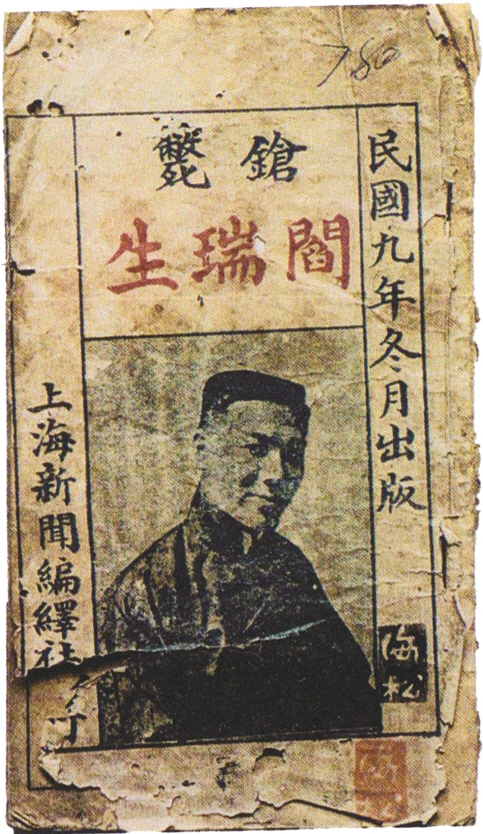 民國九年冬月出版
鎗斃
閻瑞生
上海新聞編繹社